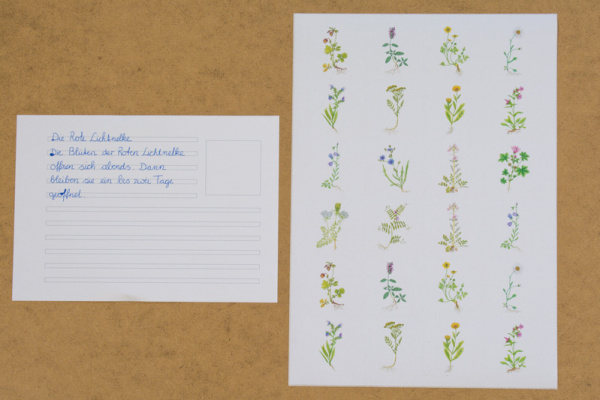 Die Rote Lichtnelke
Die Blüten der Roten Lichtnelke
öffnen sich abends. Dann
bleiben sie ein bis zwei Tage
geöffnet.